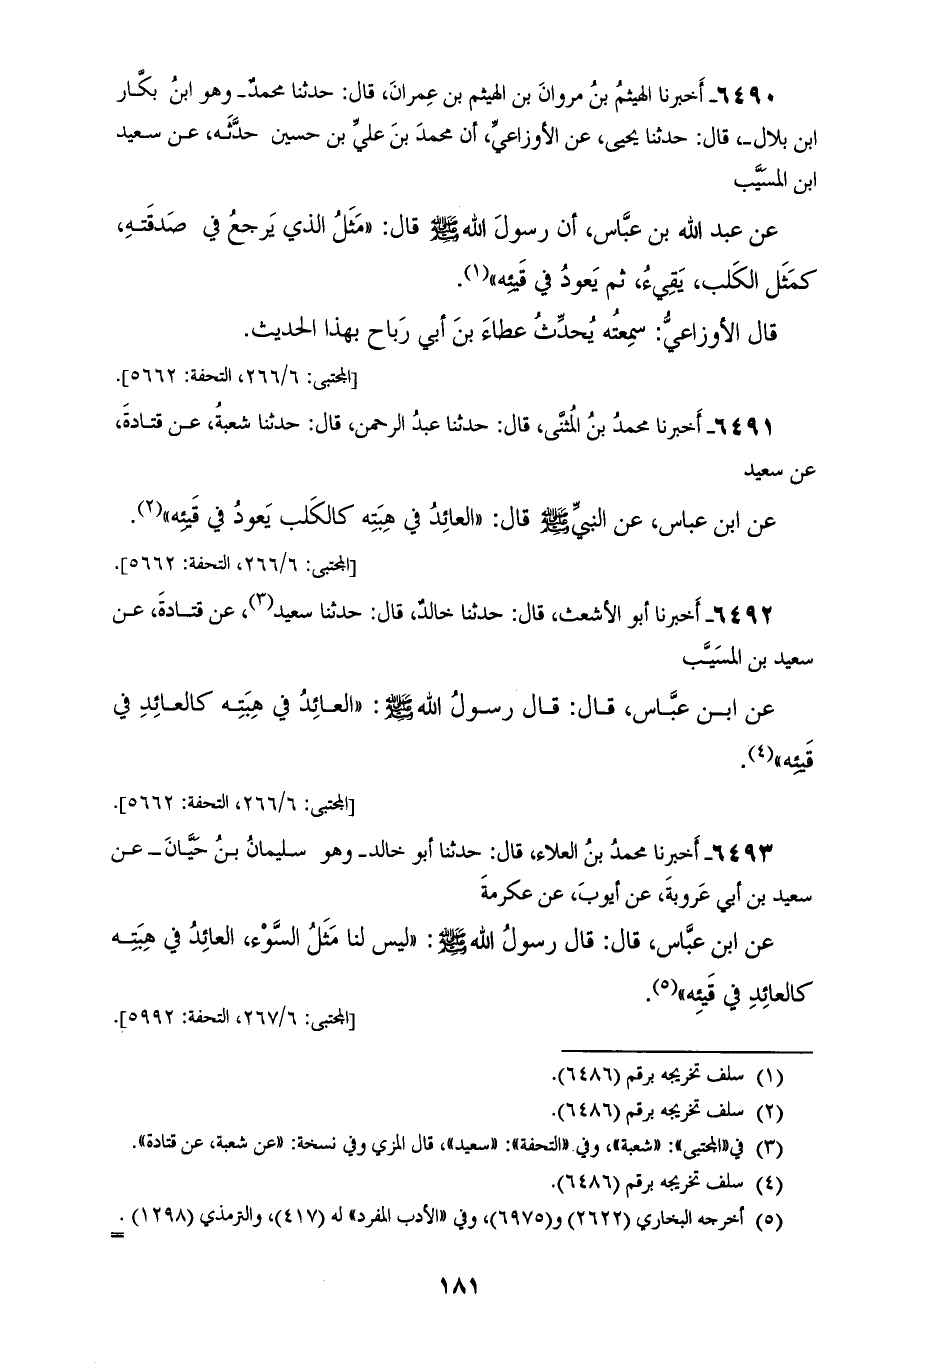 ٦٤٩٠ـ أَخبرنا الهيثمُ بنُ مروانَ بن الهيثم بن عِمرانَ، قال: حدثنا محمدٌـ وهو ابنُ بكَّار
ابن بلال ـ، قال: حدثنا يحيى، عن الأوزاعيِّ، أن محمدَ بنَ عليِّ بن حسين حدَّثَه، عن سعيد
ابن المسَيَّب
عن عبد الله بن عبَّاس، أن رسولَ الله ﷺ قال: «مَثَلُ الذي يَرجعُ في صَدقَتهِ،
كمَثَل الكَلب، يَقِيءُ، ثم يَعودُ في قَيئِه»(١).
قال الأوزاعيُّ: سمِعتُه يُحدِّثُ عطاءَ بنَ أبي رَباح بهذا الحديث.
[المجتبى: ٢٦٦/٦، التحفة: ٥٦٦٢].
٦٤٩١ـ أَخبرنا محمدُ بنُ المُثنَّى، قال: حدثنا عبدُ الرحمن، قال: حدثنا شعبةُ، عن قتادةَ،
عن سعيد
عن ابن عباس، عن النبيِّ ﷺ قال: «العائِدُ في هِبَتِه كالكَلب يَعودُ في قَيئِه»(٢).
[المجتبى: ٢٦٦/٦، التحفة: ٥٦٦٢].
٦٤٩٢ـ أَخبرنا أبو الأشعث، قال: حدثنا خالدٌ، قال: حدثنا سعيد(٣)، عن قتادةَ، عن
سعيد بن المسَيَّب
عن ابن عبَّاس، قال: قال رسولُ الله ﷺ: «العائِدُ في هِبَتِه كالعائِدِ في
قَيئِه»(٤).
[المجتبى: ٢٦٦/٦، التحفة: ٥٦٦٢].
٦٤٩٣ـ أَخبرنا محمدُ بنُ العلاء، قال: حدثنا أبو خالدـ وهو سليمانُ بنُ حَيَّانَ ـ عن
سعيد بن أبي عَروبةَ، عن أيوبَ، عن عكرمةَ
عن ابن عبَّاس، قال: قال رسولُ الله ﷺ: «ليس لنا مَثَلُ السَّوْء، العائِدُ في هِبَتِه
كالعائِدِ في قَيئِه»(٥).
[المجتبى: ٢٦٧/٦، التحفة: ٥٩٩٢].
(١) سلف تخريجه برقم (٦٤٨٦).
(٢) سلف تخريجه برقم (٦٤٨٦).
(٣) في«المجتبى»: «شعبة»، وفي «التحفة»: «سعيد»، قال المزي وفي نسخة: «عن شعبة، عن قتادة».
(٤) سلف تخريجه برقم (٦٤٨٦).
(٥) أخرجه البخاري (٢٦٢٢) و(٦٩٧٥)، وفي «الأدب المفرد» له (٤١٧)، والترمذي (١٢٩٨) . =
١٨١